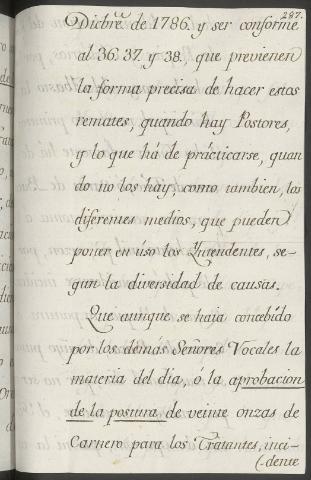 287.
Dicbrê. de 1786. y ser conforme
al 36. 37. y 38. que previenen
la forma precisa de hacer estos
remates, quando hay Postores,
y lo que há de prácticarse, quan
do no los hay, como tambien, los
diferentes medios, que pueden
poner en úso los Yntendentes, se-
gun la diversidad de causas.
Que aunque se haja concebido
por los demás Señores Vocales la
materia del dia, ó la aprobacion
de la postura de veinte onzas de
Carnero para los Tratantes, inci-
(dente